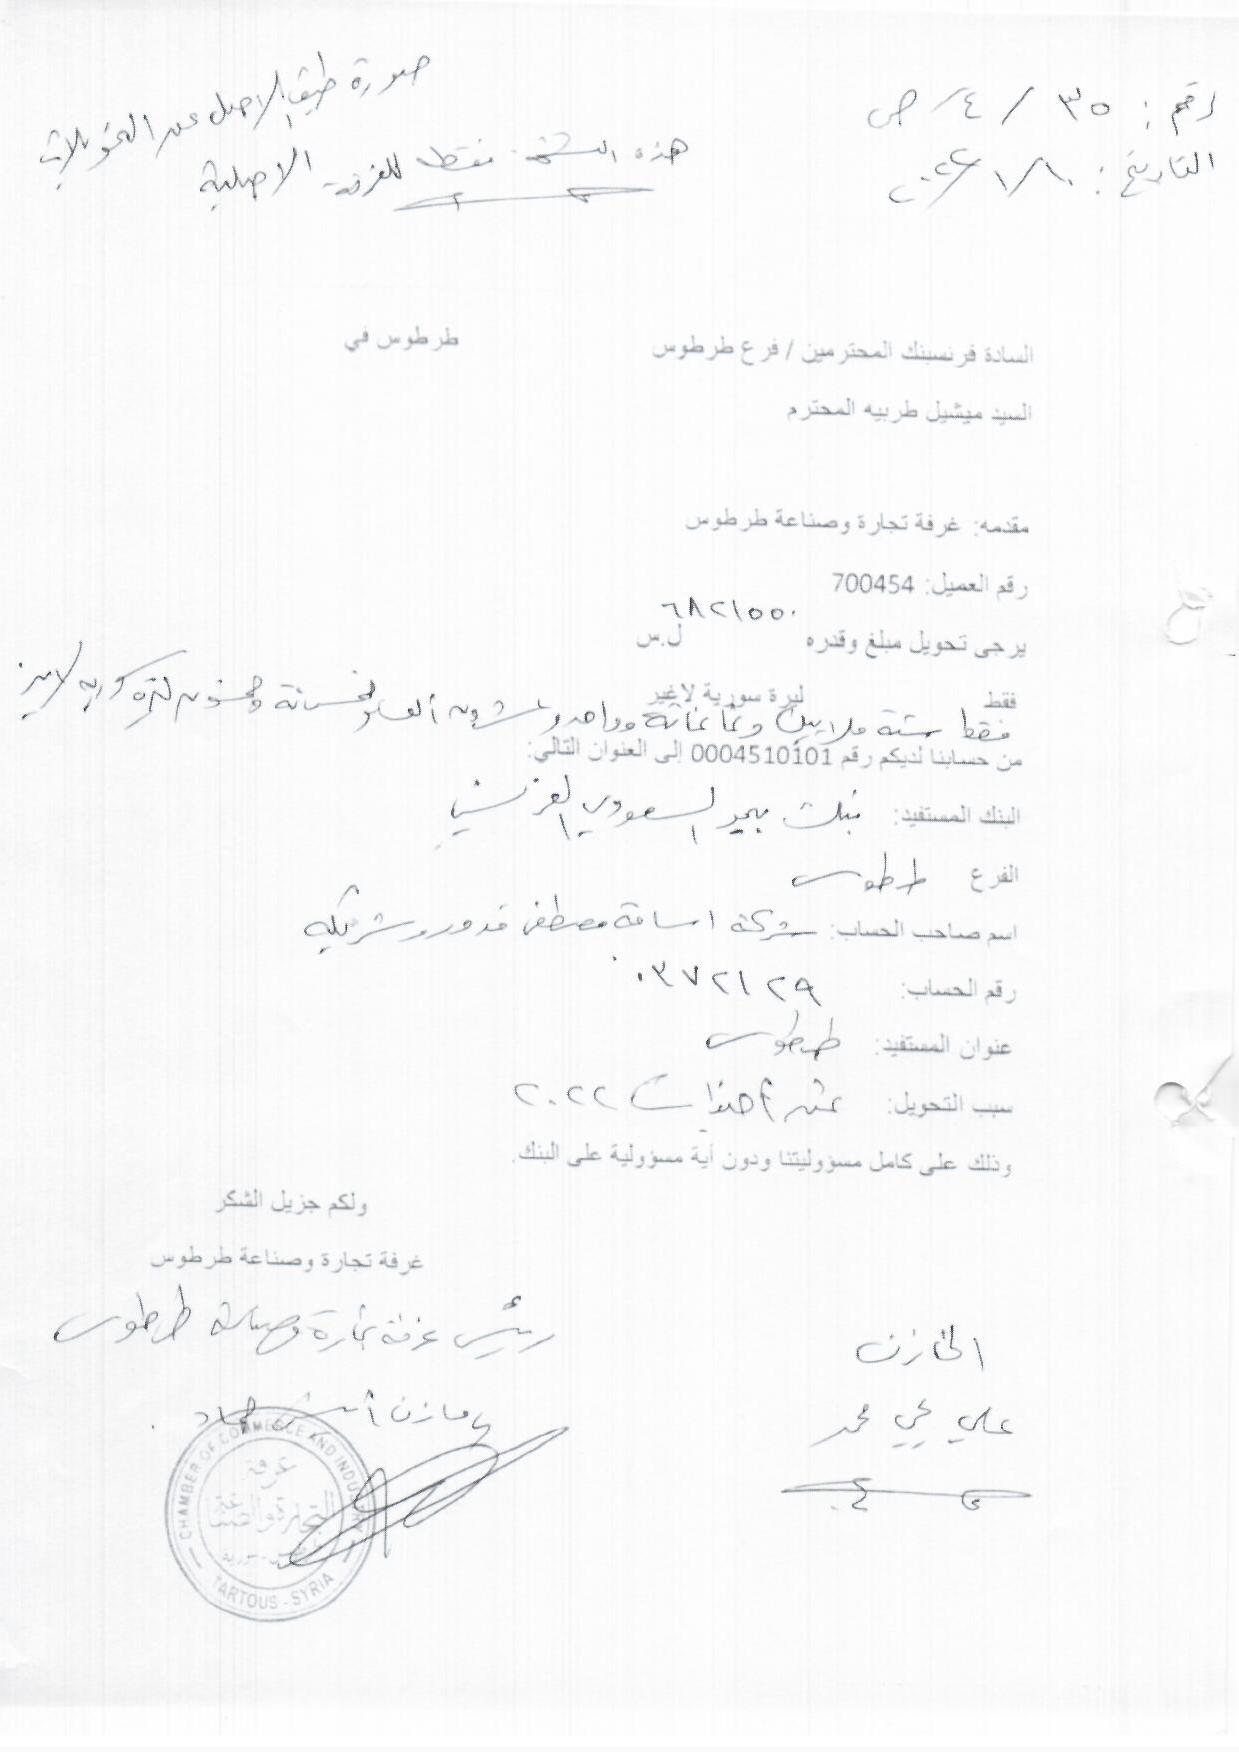 صورة طبق الاصل عن التحويلات
رقم: ٣٥ / ٤/ ص
هذه النسخة فقط للغرفة الاصلية
التاريخ: ١٠/١/
السادة فرنسبنك المحترمين / فرع طرطوس
طرطوس في
السيد ميشيل طربيه المحترم
مقدمه: غرفة تجارة وصناعة طرطوس
رقم العميل: 700454
يرجى تحويل مبلغ وقدره ٦٨٢١٥٥٠ ل.س
فقط ليرة سورية لاغير
فقط ستة ملايين وثمانمائة وواحد وعشرون ألف وخمسمائة وخمسون ليرة سورية لاغير
من حسابنا لديكم رقم 0004510101 إلى العنوان التالي:
البنك المستفيد: بنك بيمو السعودي الفرنسي
الفرع طرطوس
اسم صاحب الحساب: شركة اسامة مصطفى قدور وشريكه
رقم الحساب: ٠٣٧٢١٢٩
عنوان المستفيد: طرطوس
سبب التحويل: ٢٠٢٢
وذلك على كامل مسؤوليتنا ودون أية مسؤولية على البنك.
ولكم جزيل الشكر
غرفة تجارة وصناعة طرطوس
رئيس غرفة تجارة وصناعة طرطوس
الخازن
مازن حماد
علي محمد
CHAMBER OF COMMERCE AND INDUSTRY
غرفة
التجارة والصناعة
طرطوس - سورية
TARTOUS - SYRIA